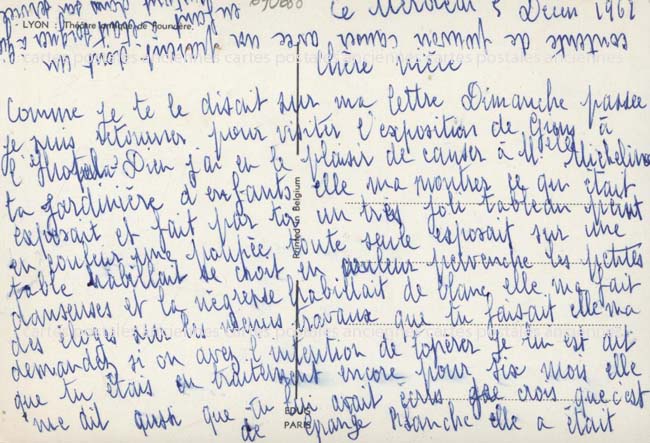 Le Mercredi 5 Decem 1962
LYON : Théâtre antique de Fourvière.
Chère nièce
Comme je te le disait sur ma lettre Dimanche passée
Je suis retourner pour visiter l'exposition de Gion à
l'Hotel Dieu j'ai eu le plaisir de causer à Melle Micheline
ta Jardinière d'enfants elle ma montrer ce qui était
exposant et fait par toi un très joli tableau peint
en couleur une poupée toute seule exposait sur une
table habillait se chort en couleur pervenche les petites
danseuses et la négresse habillait de blanc, elle ma fait
des éloges sur les menus travaux que tu faisait elle ma
demandez si on avez l'intention de t'opérer je lui est dit
que tu étais en traitement encore pour six mois elle
me dit aussi que tu lui avait écris je crois que c'est
de Grange Blanche elle a était
contente de pouvoir causer avec un
Printed in Belgium
EDUG
PARIS
cartes postales anciennes cartes postales anciennes
cartes postales anciennes cartes postales anciennes